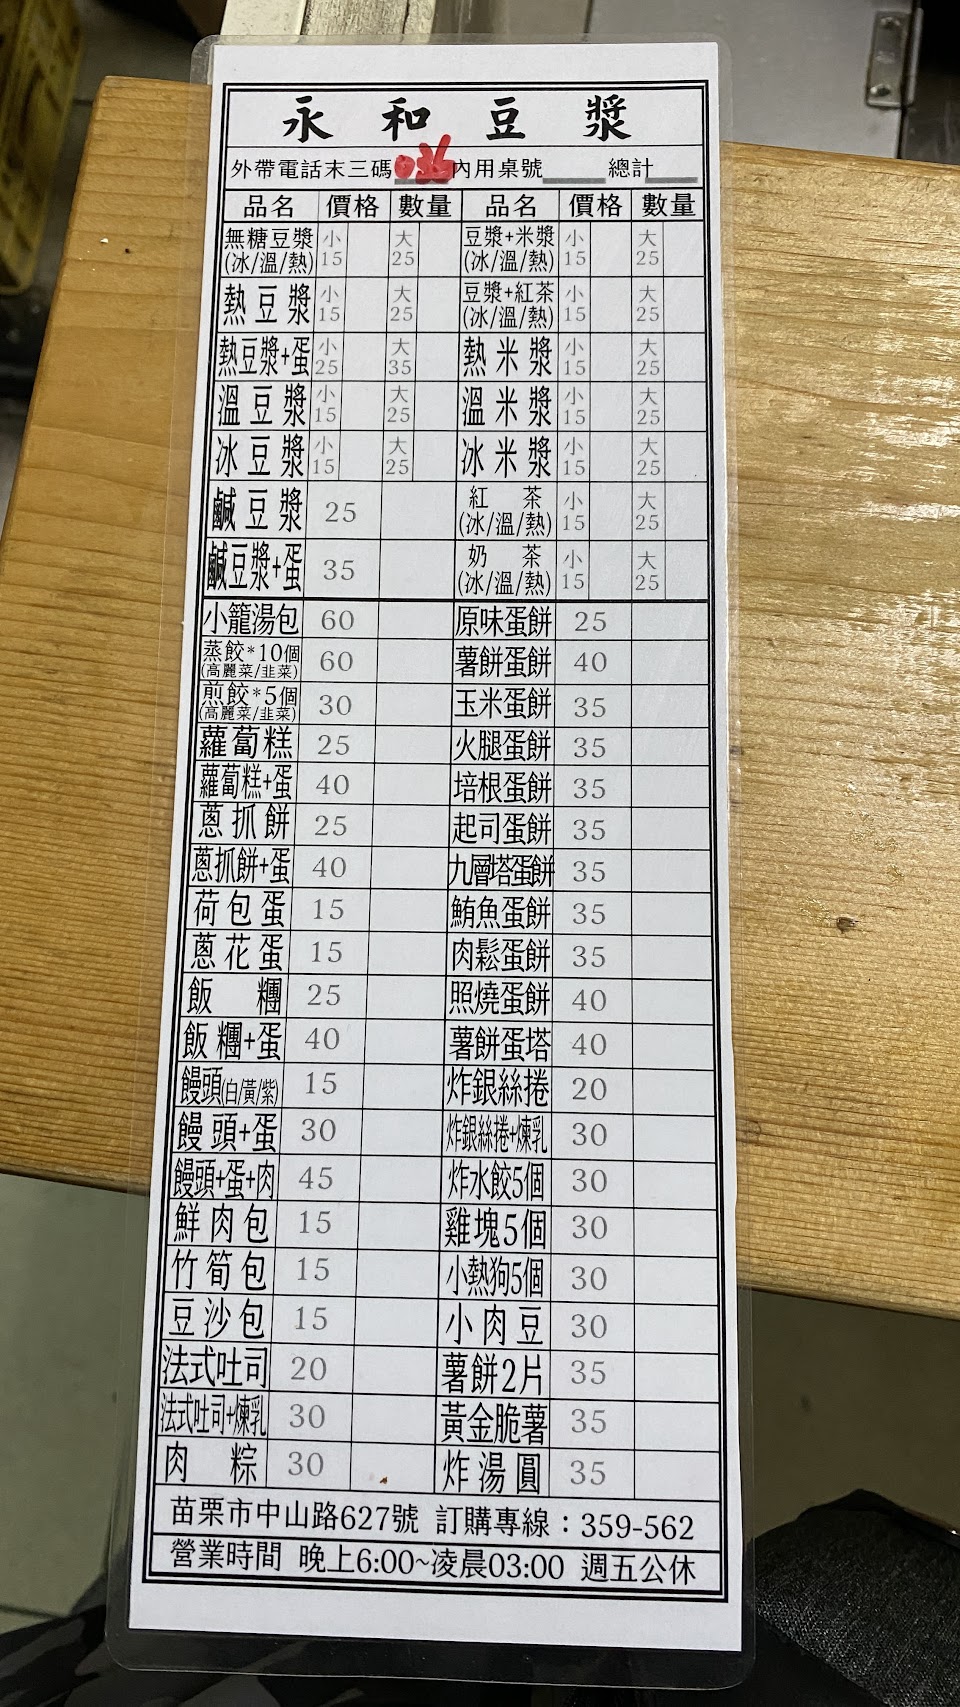 永和豆漿
外帶電話末三碼036內用桌號 總計
品名 價格 數量 品名 價格 數量
無糖豆漿(冰/溫/熱) 小15 大25 豆漿+米漿(冰/溫/熱) 小15 大25
熱豆漿 小15 大25 豆漿+紅茶(冰/溫/熱) 小15 大25
熱豆漿+蛋 小25 大35 熱米漿 小15 大25
溫豆漿 小15 大25 溫米漿 小15 大25
冰豆漿 小15 大25 冰米漿 小15 大25
鹹豆漿 25 紅茶(冰/溫/熱) 小15 大25
鹹豆漿+蛋 35 奶茶(冰/溫/熱) 小15 大25
小籠湯包 60 原味蛋餅 25
蒸餃*10個(高麗菜/韭菜) 60 薯餅蛋餅 40
煎餃*5個(高麗菜/韭菜) 30 玉米蛋餅 35
蘿蔔糕 25 火腿蛋餅 35
蘿蔔糕+蛋 40 培根蛋餅 35
蔥抓餅 25 起司蛋餅 35
蔥抓餅+蛋 40 九層塔蛋餅 35
荷包蛋 15 鮪魚蛋餅 35
蔥花蛋 15 肉鬆蛋餅 35
飯糰 25 照燒蛋餅 40
飯糰+蛋 40 薯餅蛋塔 40
饅頭(白/黃/紫) 15 炸銀絲捲 20
饅頭+蛋 30 炸銀絲捲+煉乳 30
饅頭+蛋+肉 45 炸水餃5個 30
鮮肉包 15 雞塊5個 30
竹筍包 15 小熱狗5個 30
豆沙包 15 小肉豆 30
法式吐司 20 薯餅2片 35
法式吐司+煉乳 30 黃金脆薯 35
肉粽 30 炸湯圓 35
苗栗市中山路627號 訂購專線：359-562
營業時間 晚上6:00~凌晨03:00 週五公休